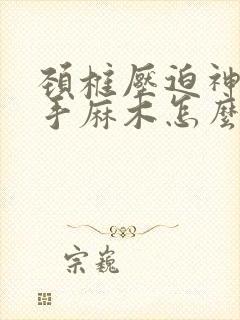 頚椎壓迫神
手麻木怎麼
宗巍